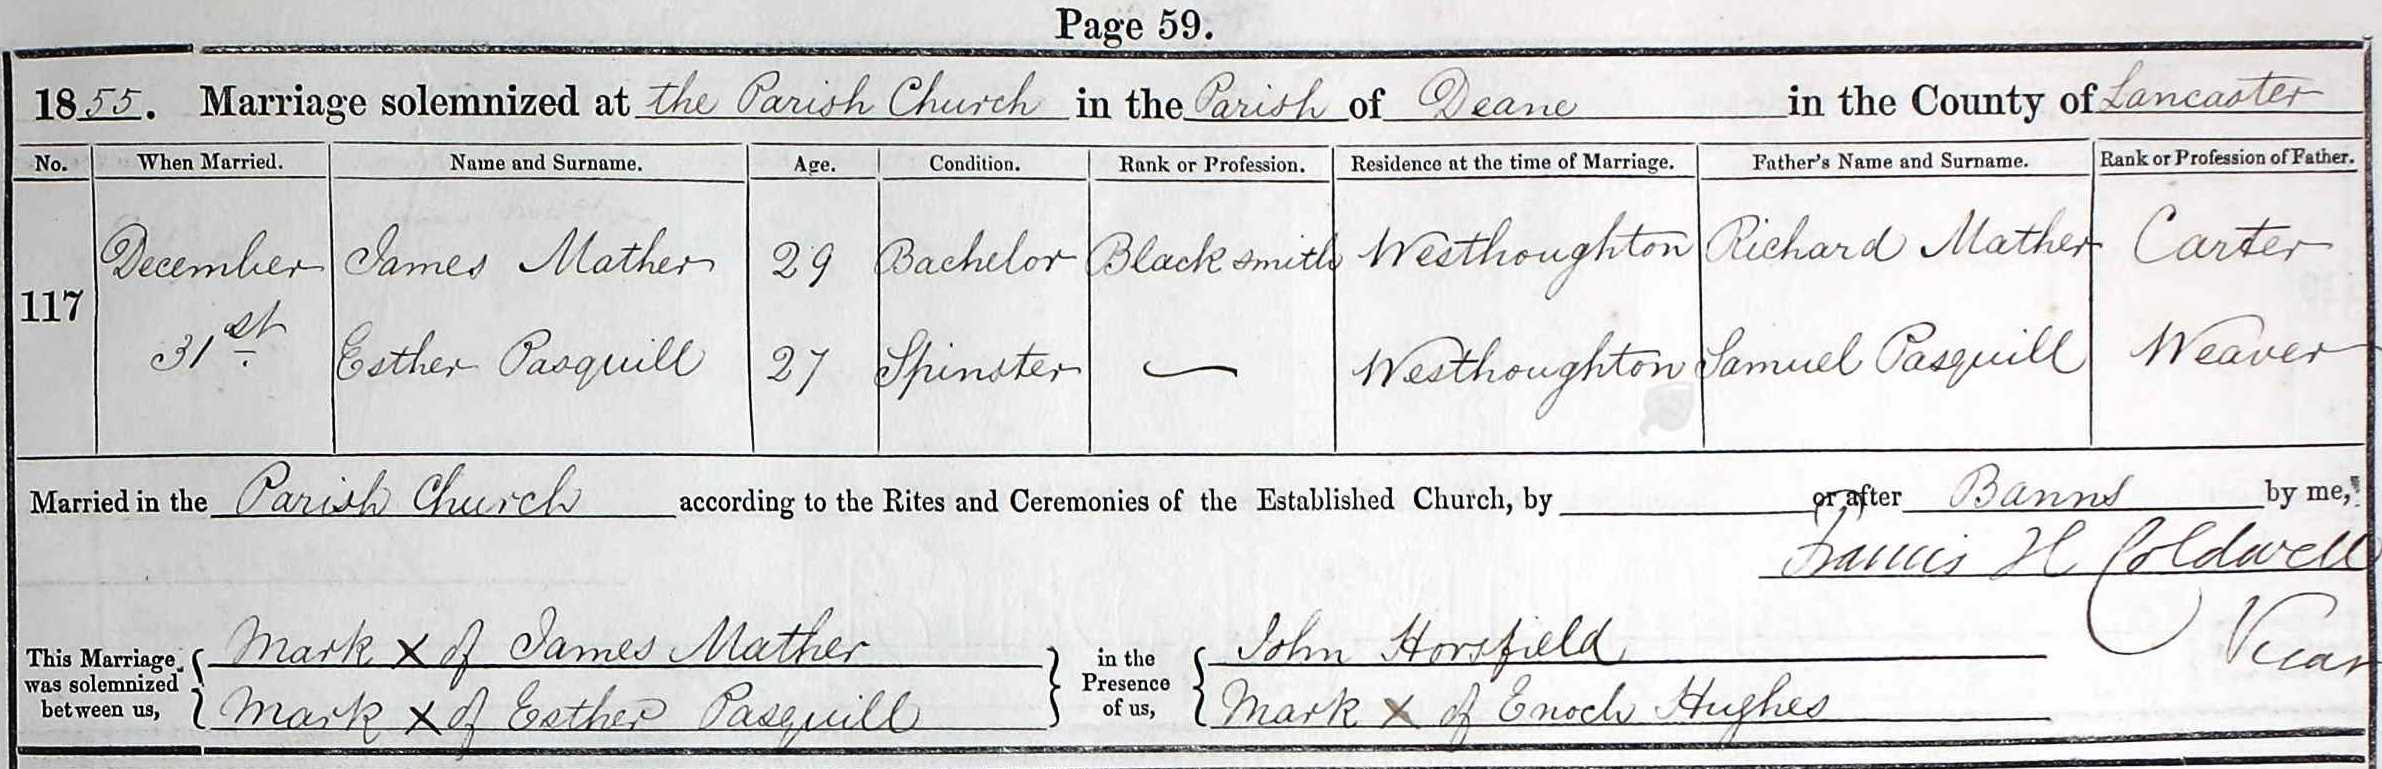 Page 59.
1855. Marriage solemnized at the Parish Church in the Parish of Deane in the County of Lancaster
No. When Married. Name and Surname. Age. Condition. Rank or Profession. Residence at the time of Marriage. Father's Name and Surname. Rank or Profession of Father.
December James Mather 29 Bachelor Blacksmith Westhoughton Richard Mather Carter
117
31st. Esther Pasquill 27 Spinster — Westhoughton Samuel Pasquill Weaver
Married in the Parish Church according to the Rites and Ceremonies of the Established Church, by or after Banns by me,
Francis H Coldwell
Vicar
This Marriage was solemnized between us,
Mark X of James Mather
Mark X of Esther Pasquill
in the Presence of us,
John Horsfield
Mark X of Enoch Hughes